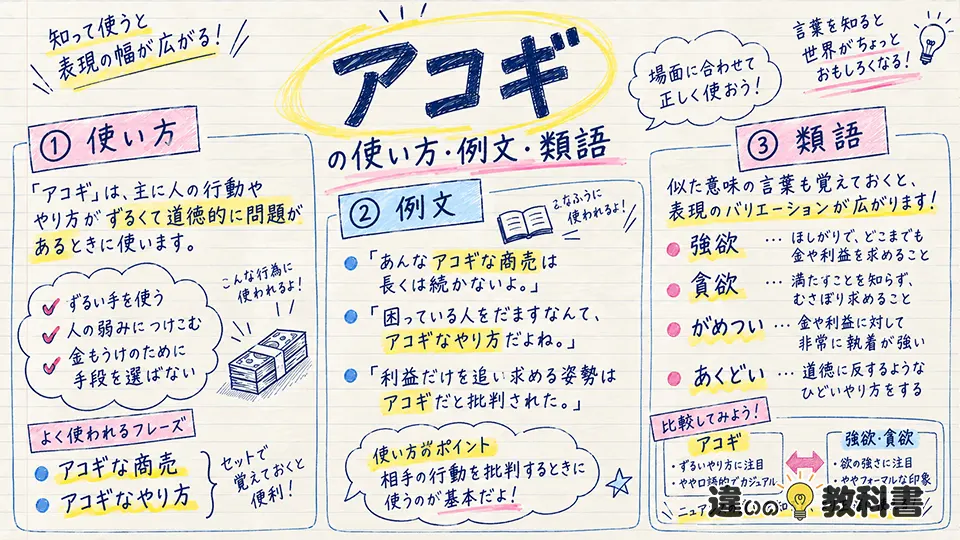 知って使うと
表現の幅が広がる!
アコギ
の使い方・例文・類語
場面に合わせて
正しく使おう!
言葉を知ると
世界がちょっと
おもしろくなる!
① 使い方
「アコギ」は、主に人の行動や
やり方がずるくて道徳的に問題が
あるときに使います。
ずるい手を使う
人の弱みにつけこむ
金もうけのために
手段を選ばない
こんな行為に
使われるよ!
よく使われるフレーズ
アコギな商売
アコギなやり方
セットで
覚えておくと
便利!
② 例文
こなふうに
使われるよ!
「あんなアコギな商売は
長くは続かないよ。」
「困っている人をだますなんて、
アコギなやり方だよね。」
「利益だけを追い求める姿勢は
アコギだと批判された。」
使い方のポイント
相手の行動を批判するときに
使うのが基本だよ!
③ 類語
似た意味の言葉も覚えておくと、
表現のバリエーションが広がります!
強欲 … ほしがりで、どこまでも
金や利益を求めること
貪欲 … 満たすことを知らず、
むさぼり求めること
がめつい … 金や利益に対して
非常に執着が強い
あくどい … 道徳に反するような
ひどいやり方をする
比較してみよう!
アコギ
・ずるいやり方に注目
・やや口語的でカジュアル
強欲・貪欲
・欲の強さに注目
・ややフォーマルな印象
ニュア
違いの教科書